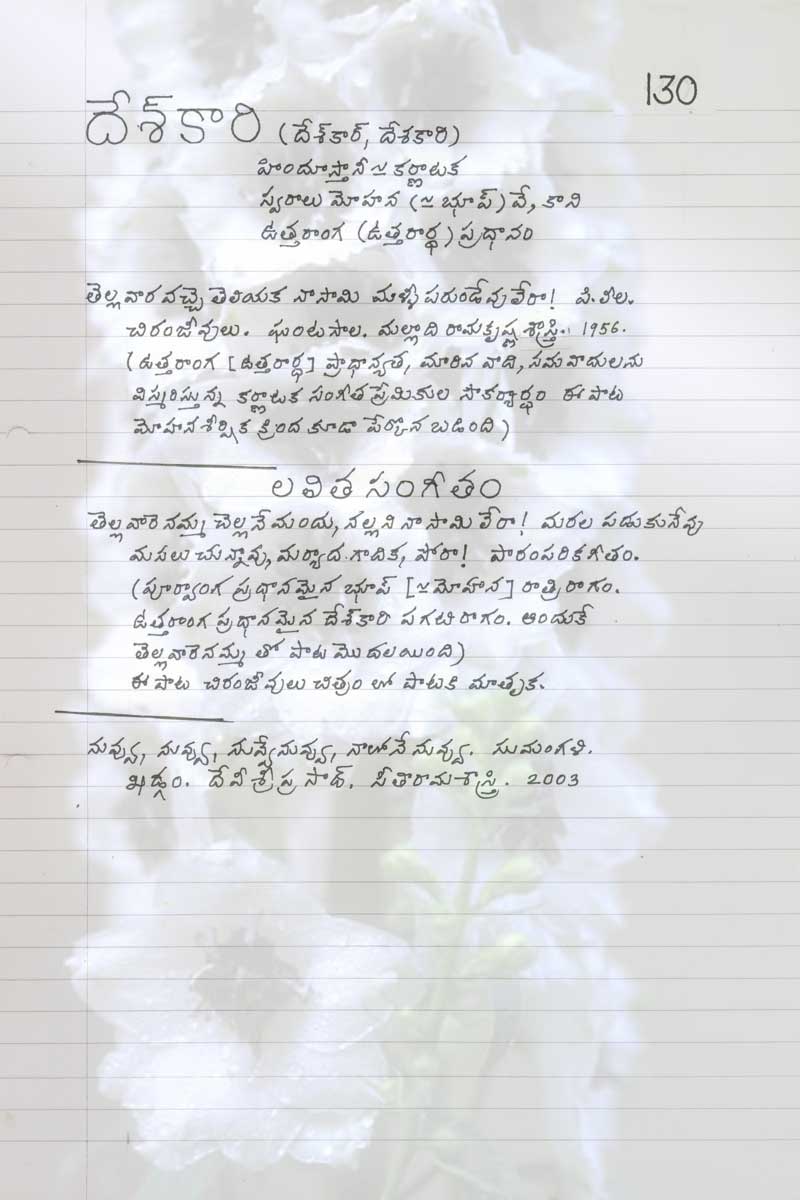 130
దేశ్‌కారి (దేశ్‌కార్, దేశకారి)
హిందూస్తానీ ≃ కర్ణాటక
స్వరాలు మోహన (≃ భూప్) వే, కాని
ఉత్తరాంగ (ఉత్తరార్ధ) ప్రధానం
తెల్లవారవచ్చె తెలియక నాసామి మళ్ళీ పరుండేవులేరా! పి.లీల.
చిరంజీవులు. ఘంటసాల. మల్లాది రామకృష్ణ శాస్త్రి. 1956.
(ఉత్తరాంగ [ఉత్తరార్ధ] ప్రాధాన్యత, మారిన వాది, సమవాదులను
విస్మరిస్తున్న కర్ణాటక సంగీత ప్రేమికుల సౌకర్యార్థం ఈ పాట
మోహన శీర్షిక క్రింద కూడా పేర్కొన బడింది)
లలిత సంగీతం
తెల్లవారెనమ్మ చెల్లనేమందు, నల్లని నాసామి లేరా! మరల పడుకునేవు
మసలు చున్నావు, మర్యాద గాదిక, పోరా! పారంపరిక గీతం.
(పూర్వాంగ ప్రధానమైన భూప్ [≃ మోహన] రాత్రి రాగం.
ఉత్తరాంగ ప్రధానమైన దేశ్‌కారి పగటి రాగం. అందుకే
తెల్లవారెనమ్మ తో పాట మొదలయింది)
ఈ పాట చిరంజీవులు చిత్రం లో పాటకి మాతృక.
నువ్వు, నువ్వు, నువ్వేనువ్వు, నాలోనే నువ్వు. సుమంగళి.
ఖడ్గం. దేవీశ్రీ ప్రసాద్. సీతారామశాస్త్రి. 2003